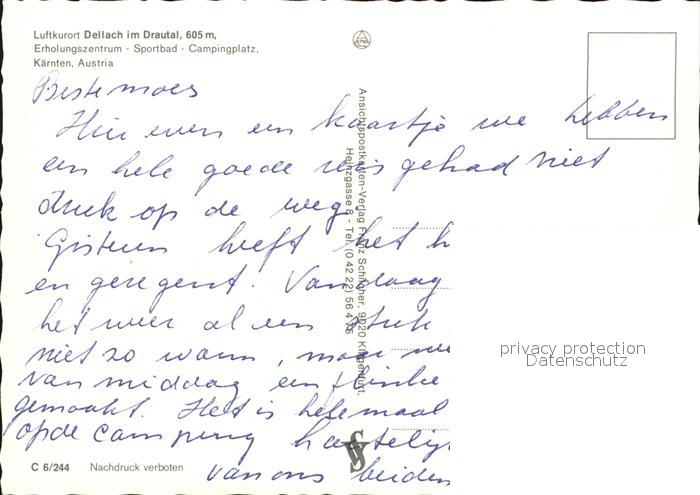 Luftkurort Dellach im Drautal, 605 m,
Erholungszentrum - Sportbad - Campingplatz,
Kärnten, Austria
Beste moes
Hier even een kaartje we hebben
een hele goede reis gehad niet
druk op de weg.
Gisteren heeft het h
en geregent. Vandaag
het weer al een stuk
niet zo warm, maar we
van middag een flinke
gemaakt. Het is helemaal
op de camping hartelij
van ons beiden
Ansichtspostkarten-Verlag Franz Schilcher, 9020 Klagenfurt,
Heinzgasse 8 - Tel. (0 42 22) 56 4
C 6/244 Nachdruck verboten
privacy protection
Datenschutz